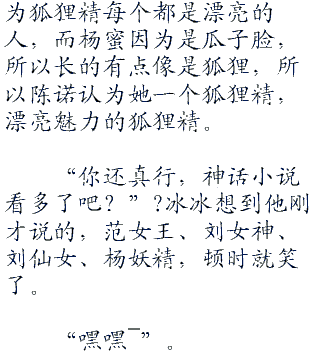 为狐狸精每个都是漂亮的
人，而杨蜜因为是瓜子脸，
所以长的有点像是狐狸，所
以陈诺认为她一个狐狸精，
漂亮魅力的狐狸精。
“你还真行，神话小说
看多了吧？”?冰冰想到他刚
才说的，范女王、刘女神、
刘仙女、杨妖精，顿时就笑
了。
“嘿嘿¯”。